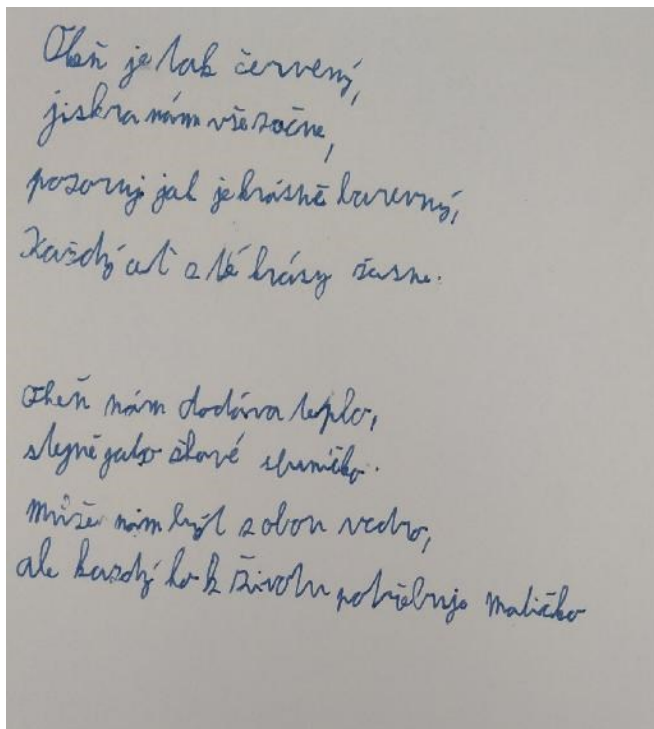 Oheň je tak červený,
jiskra nám vše začne,
pozoruj jak je krásně barevný,
Každý ať z té krásy žasne.
Oheň nám dodáva teplo,
stejně jako žhavé sluníčko.
Může nám být z obou vedro,
ale každý ho k životu potřebuje maličko